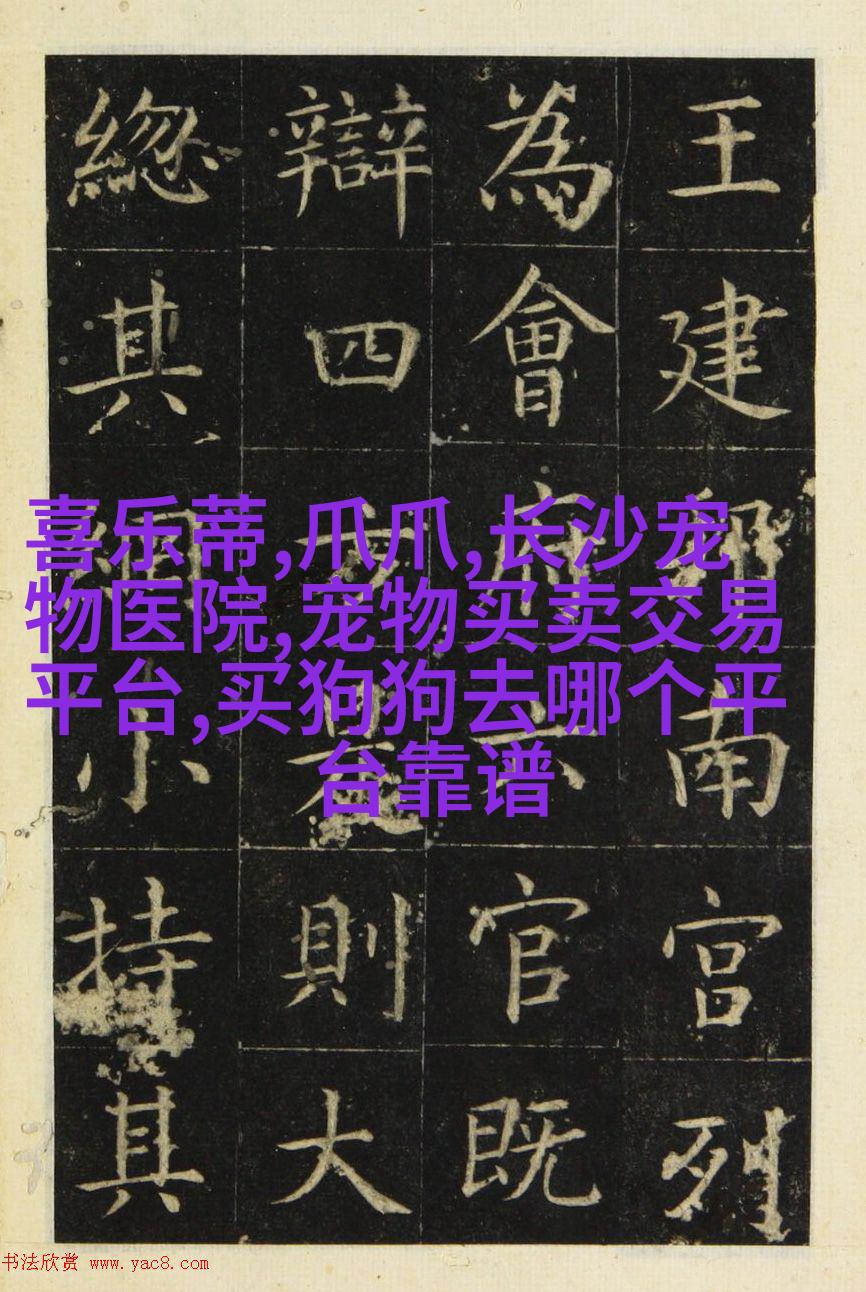 喜乐蒂,爪爪,长沙宠
物医院,宠物买卖交易
平台,买狗狗去哪个平
台靠谱
王建南宮列
為會府六官既
辯四方則大
緫其綱小持其
书法欣赏 www.yac8.com